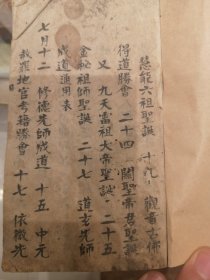 慧能六祖聖誕 十九 觀音古佛
得道勝會 二十四 關聖帝君聖誕
又 九天雷祖大帝聖誕 二十五
金秘祖師聖誕 二十七 道玄先師
成道滙用表
七月十二 修德先師成道 十五 中元
赦罪地官考籍勝會 十七 依徹先